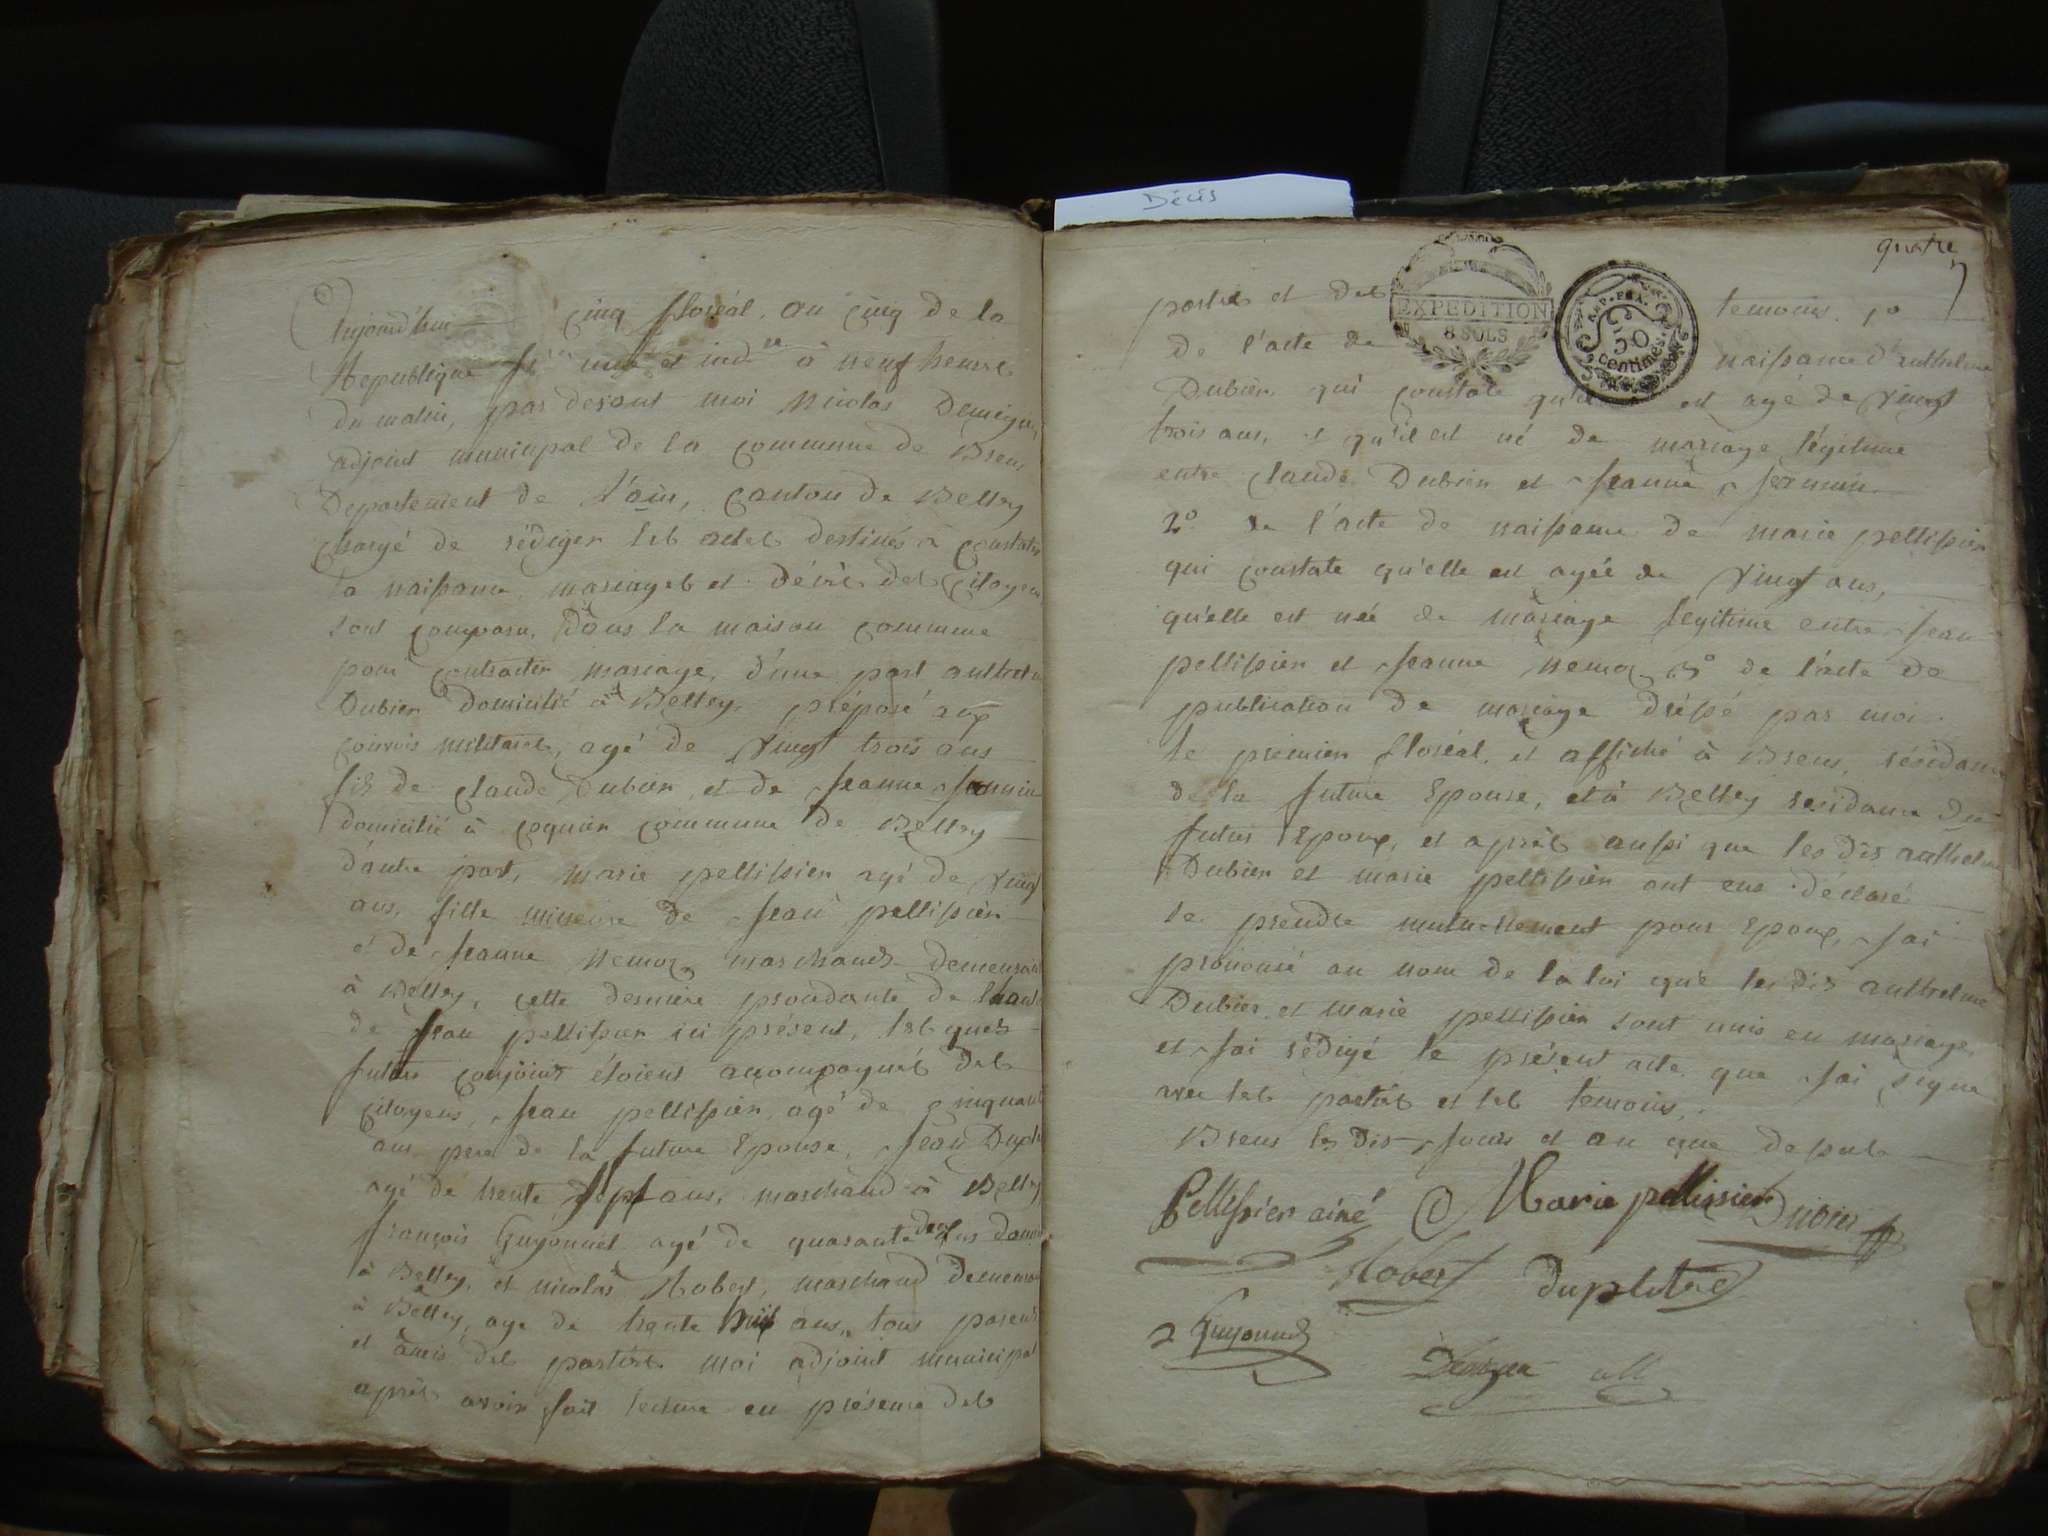 Aujourd'hui cinq floréal, an cinq de la
Republique fr.se une et ind.le à neuf heures
du matin, par devant moi Nicolas
adjoint municipal de la commune de Brens
Departement de l'ain, canton de Belley
chargé de rédiger les actes destinés à constater
la naissance, mariages et décès des citoyens
sont comparu, dans la maison commune
pour contracter mariage, d'une part anthelme
Dubier domicilié à Belley préposé aux
convois militaires, agé de vingt trois ans
fils de claude Dubier, et de Jeanne
domicilié à coquier commune de Belley
d'autre part, marie pellissier agé de vingt
ans, fille mineure de Jean pellissier
et de Jeanne Nemoz marchands demeurant
à Belley, cette derniere
de Jean pellissier ici présent, lesquels
futurs conjoints étoient accompagnés des
citoyens, Jean pellissier, agé de cinquante
ans, pere de la future Epouse, Jean
agé de trente sept ans, marchand à Belley
françois Guyonnet agé de quarante deux ans
à Belley, et nicolas Robert, marchand
à Belley, age de trente huit ans, tous parents
et amis des parties moi adjoint municipal
après avoir fait lecture en présence des
Décès
quatre
EXPEDITION
8 SOLS
50
centimes
parties et des temoins, 1o
de l'acte de naissance d'anthelme
Dubier qui constate qu'il est agé de vingt
trois ans, et qu'il est né de mariage légitime
entre claude Dubier et Jeanne
2o de l'acte de naissance de marie pellissier
qui constate qu'elle est agée de vingt ans,
qu'elle est née de mariage legitime entre Jean
pellissier et Jeanne Nemoz 3o de l'acte de
publication de mariage dréssé par moi
le premier floréal, et affiché à Brens, résidance
de la future Epouse, et à Belley residance du
futur Epoux, et après aussi que les dis anthelme
Dubier et marie pellissier ont eus déclaré
se prendre mutuellement pour Epoux, Jai
prononcé au nom de la loi que les dis anthelme
Dubier et marie pellissier sont unis en mariage,
et Jai rédigé le présent acte que Jai signé
avec les parties et les temoins,
Brens les dis Jours et an que dessus
Pellissier ainé Marie pellissier Dubier
Robert dupletre
Guyonnet